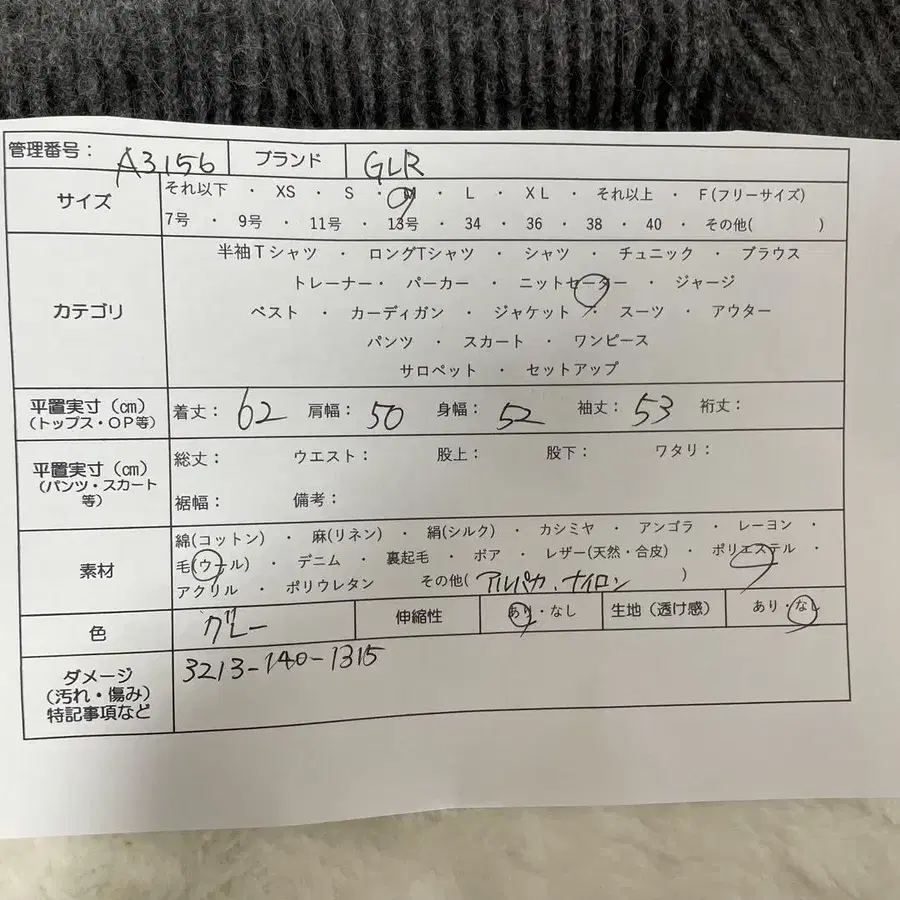 管理番号： A3156 ブランド GLR
サイズ
それ以下 ・ XS ・ S ・ M ・ L ・ XL ・ それ以上 ・ F(フリーサイズ)
7号 ・ 9号 ・ 11号 ・ 13号 ・ 34 ・ 36 ・ 38 ・ 40 ・ その他( )
カテゴリ
半袖Tシャツ ・ ロングTシャツ ・ シャツ ・ チュニック ・ ブラウス
トレーナー・ パーカー ・ ニットセーター ・ ジャージ
ベスト ・ カーディガン ・ ジャケット ・ スーツ ・ アウター
パンツ ・ スカート ・ ワンピース
サロペット ・ セットアップ
平置実寸（㎝）
(トップス・OP等)
着丈： 62 肩幅： 50 身幅： 52 袖丈： 53 裄丈：
平置実寸（㎝）
(パンツ・スカート
等)
総丈： ウエスト： 股上： 股下： ワタリ：
裾幅： 備考：
素材
綿(コットン) ・ 麻(リネン) ・ 絹(シルク) ・ カシミヤ ・ アンゴラ ・ レーヨン ・
毛(ウール) ・ デニム ・ 裏起毛 ・ ボア ・ レザー(天然・合皮) ・ ポリエステル ・
アクリル ・ ポリウレタン その他( アルパカ、ナイロン )
色 グレー 伸縮性 あり・なし 生地（透け感） あり・なし
ダメージ
（汚れ・傷み）
特記事項など
3213-140-1315